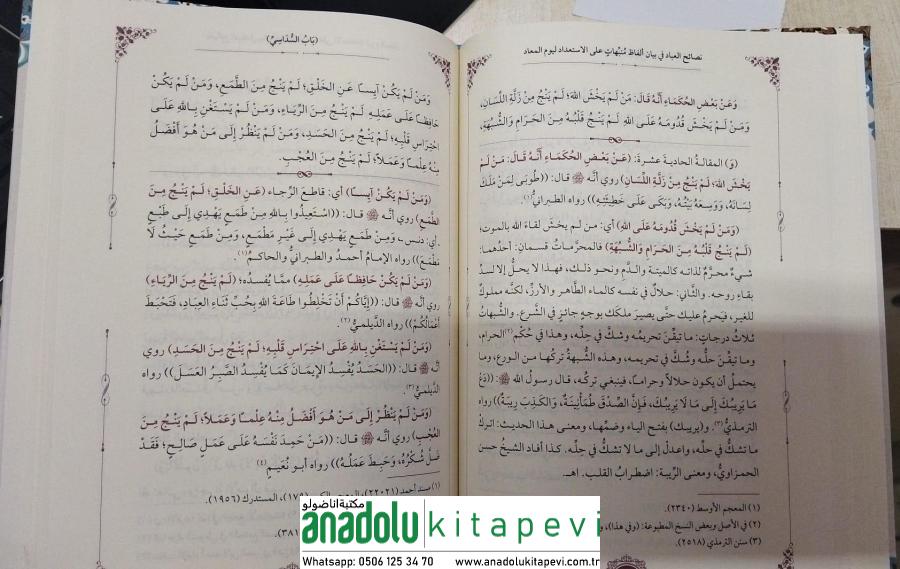 نصائح العباد في بيان ألفاظ مُنبِّهاتٍ على الاستعداد ليوم المعاد
وَعَنْ بَعْضِ الْحُكَمَاءِ أَنَّهُ قَالَ: مَنْ لَمْ يَخْشَ اللهَ؛ لَمْ يَنْجُ مِنْ زَلَّةِ اللِّسَانِ،
وَمَنْ لَمْ يَخْشَ قُدُومَهُ عَلَى اللهِ لَمْ يَنْجُ قَلْبُهُ مِنَ الْحَرَامِ وَالشُّبْهَةِ،
(وَ) المقالةُ الحاديةَ عشرةَ: (عَنْ بَعْضِ الْحُكَمَاءِ أَنَّهُ قَالَ: مَنْ لَمْ
يَخْشَ اللهَ؛ لَمْ يَنْجُ مِنْ زَلَّةِ اللِّسَانِ) روي أنَّه ﷺ قال: ((طُوبَى لِمَنْ مَلَكَ
لِسَانَهُ، وَوَسِعَهُ بَيْتُهُ، وَبَكَى عَلَى خَطِيئَتِهِ)) رواه الطبرانيُّ(١).
(وَمَنْ لَمْ يَخْشَ قُدُومَهُ عَلَى اللهِ) أي: من لم يخشَ لقاءَ الله بالموت؛
(لَمْ يَنْجُ قَلْبُهُ مِنَ الْحَرَامِ وَالشُّبْهَةِ) فالمحرَّمات قسمان: أحدُهما:
شيءٌ محرَّمٌ لذاته كالميتة والدَّم ونحو ذلك، فهذا لا يحلُّ إلا لسدِّ
بقاءِ روحه. والثَّاني: حلالٌ في نفسه كالماء الطَّاهر والأرزِّ، لكنَّه مملوكٌ
للغير، فيَحرمُ عليك حتَّى يصيرَ ملكَك بوجهٍ جائزٍ في الشَّرع. والشُّبهاتُ
ثلاثُ درجاتٍ: ما تيقَّنَ تحريمُه وشكَّ في حِلِّه، وهذا في حُكْمِ(٢) الحرام،
وما تيقَّنَ حلُّه وشُكَّ في تحريمه، وهذه الشُّبهةُ تركُها من الورع، وما
يحتملُ أن يكونَ حلالاً وحراماً، فينبغي تركُه، قال رسولُ الله ﷺ: ((دَعْ
مَا يَرِيبُكَ إِلَى مَا لَا يَرِيبُكَ، فَإِنَّ الصِّدْقَ طُمَأْنِينَةٌ، وَالْكَذِبَ رِيبَةٌ)) رواه
الترمذيُّ(٣). و(يريبك) بفتح الياء وضمِّها، ومعنى هذا الحديث: اتركْ
ما تشكُّ في حِلِّه، واعدلْ إلى ما لا تشكُّ في حِلِّه. كذا أفاد الشيخُ حسن
الحمزاويُّ، ومعنى الرِّيبة: اضطرابُ القلب. اهـ
(١) المعجم الأوسط (٢٣٤٠).
(٢) في الأصل وبعض النسخ المطبوعة: (وفي هذا)،
(٣) سنن الترمذي (٢٥١٨).
(بَابُ السُّدَاسِيِّ)
وَمَنْ لَمْ يَكُنْ آيِساً عَنِ الْخَلْقِ؛ لَمْ يَنْجُ مِنَ الطَّمَعِ، وَمَنْ لَمْ يَكُنْ
حَافِظاً عَلَى عَمَلِهِ لَمْ يَنْجُ مِنَ الرِّيَاءِ، وَمَنْ لَمْ يَسْتَغْنِ بِاللهِ عَلَى
احْتِرَاسِ قَلْبِهِ؛ لَمْ يَنْجُ مِنَ الْحَسَدِ، وَمَنْ لَمْ يَنْظُرْ إِلَى مَنْ هُوَ أَفْضَلُ
مِنْهُ عِلْماً وَعَمَلاً؛ لَمْ يَنْجُ مِنَ الْعُجْبِ.
(وَمَنْ لَمْ يَكُنْ آيِساً) أي: قاطعَ الرَّجاء (عَنِ الْخَلْقِ؛ لَمْ يَنْجُ مِنَ
الطَّمَعِ) روي أنَّه ﷺ قال: ((اسْتَعِيذُوا بِاللهِ مِنْ طَمَعٍ يَهْدِي إِلَى طَبْعٍ
-أي: دنس-، وَمِنْ طَمَعٍ يَهْدِي إِلَى غَيْرِ مَطْمَعٍ، وَمِنْ طَمَعٍ حَيْثُ لَا
مَطْمَعَ)) رواه الإمامُ أحمدُ والطبرانيُّ والحاكم(١).
(وَمَنْ لَمْ يَكُنْ حَافِظاً عَلَى عَمَلِهِ) ممَّا يفسدُه؛ (لَمْ يَنْجُ مِنَ الرِّيَاءِ)
روي أنَّه ﷺ قال: ((إِيَّاكُمْ أَنْ تَخْلِطُوا طَاعَةَ اللهِ بِحُبِّ ثَنَاءِ الْعِبَادِ، فَتَحْبَطَ
أَعْمَالُكُمْ)) رواه الدَّيلميُّ(٢).
(وَمَنْ لَمْ يَسْتَغْنِ بِاللهِ عَلَى احْتِرَاسِ قَلْبِهِ؛ لَمْ يَنْجُ مِنَ الْحَسَدِ) روي
أنَّه ﷺ قال: ((الْحَسَدُ يُفْسِدُ الْإِيمَانَ كَمَا يُفْسِدُ الصَّبِرُ الْعَسَلَ)) رواه
الدَّيلميُّ(٣).
(وَمَنْ لَمْ يَنْظُرْ إِلَى مَنْ هُوَ أَفْضَلُ مِنْهُ عِلْماً وَعَمَلاً؛ لَمْ يَنْجُ مِنَ
الْعُجْبِ) روي أنَّه ﷺ قال: ((مَنْ حَمِدَ نَفْسَهُ عَلَى عَمَلٍ صَالِحٍ؛ فَقَدْ
ضَلَّ شُكْرُهُ، وَحَبِطَ عَمَلُهُ)) رواه أبو نُعَيْمٍ(٤)
(١) مسند أحمد (٢٢٠٢١)، المستدرك (١٩٥٦).
مكتبةأناضولو
anadolu kitapevi
Whatsapp: 0506 125 34 70 www.anadolukitapevi.com.tr